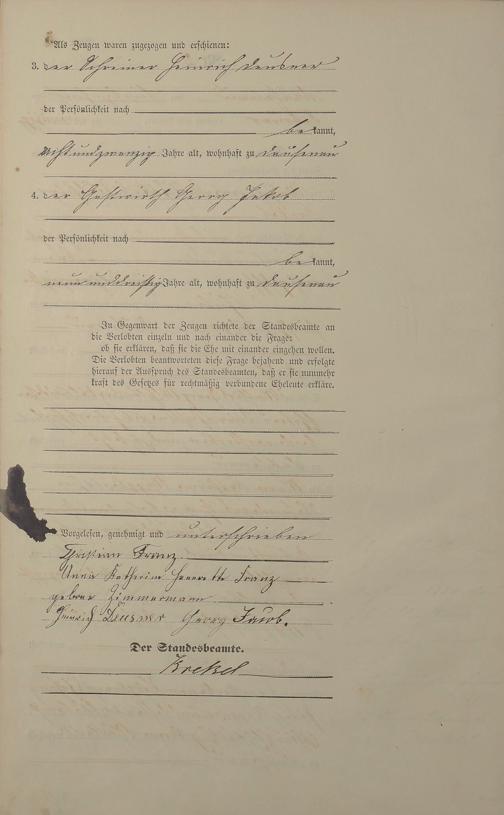 Als Zeugen waren zugezogen und erschienen:
3. der Schreiner Heinrich Deusner
der Persönlichkeit nach
be kannt,
achtundzwanzig Jahre alt, wohnhaft zu Dausenau
4. der Gastwirth Georg Jakob
der Persönlichkeit nach
be kannt,
neununddreißig Jahre alt, wohnhaft zu Dausenau
In Gegenwart der Zeugen richtete der Standesbeamte an
die Verlobten einzeln und nach einander die Frage:
ob sie erklären, daß sie die Ehe mit einander eingehen wollen.
Die Verlobten beantworteten diese Frage bejahend und erfolgte
hierauf der Ausspruch des Standesbeamten, daß er sie nunmehr
kraft des Gesetzes für rechtmäßig verbundene Eheleute erkläre.
Vorgelesen, genehmigt und unterschrieben
Christian Franz
Anna Katharine Henrette Franz
gebore Zimmermann
Heinrich Deusner Georg Jacob.
Der Standesbeamte.
Krekel